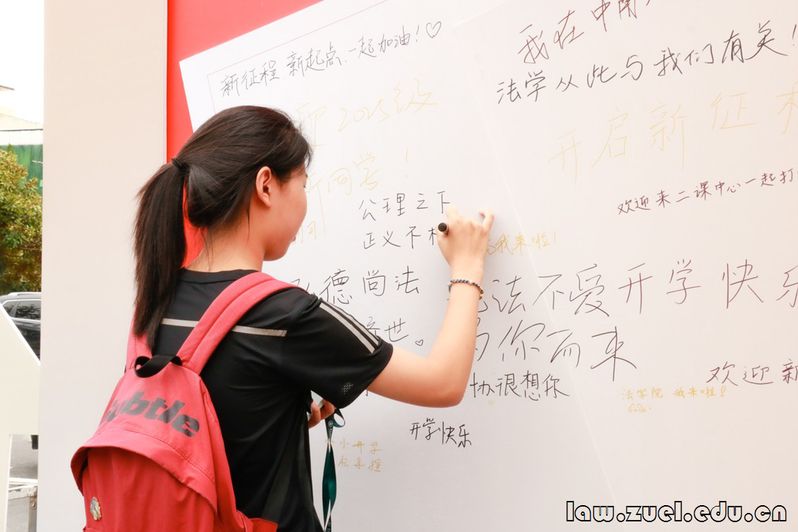 新征程 新起点 一起加油！♡
我在中南
法学从此与我们有关！
2025级
新同学！
开启新征
欢迎来二课中心一起打
公理之下
正义不
我来啦！
德尚法
世。
法不爱开学快乐
为你而来
协很想你
欢迎新
法学院 我来啦！
开学快乐
小开学
law.zuel.edu.cn